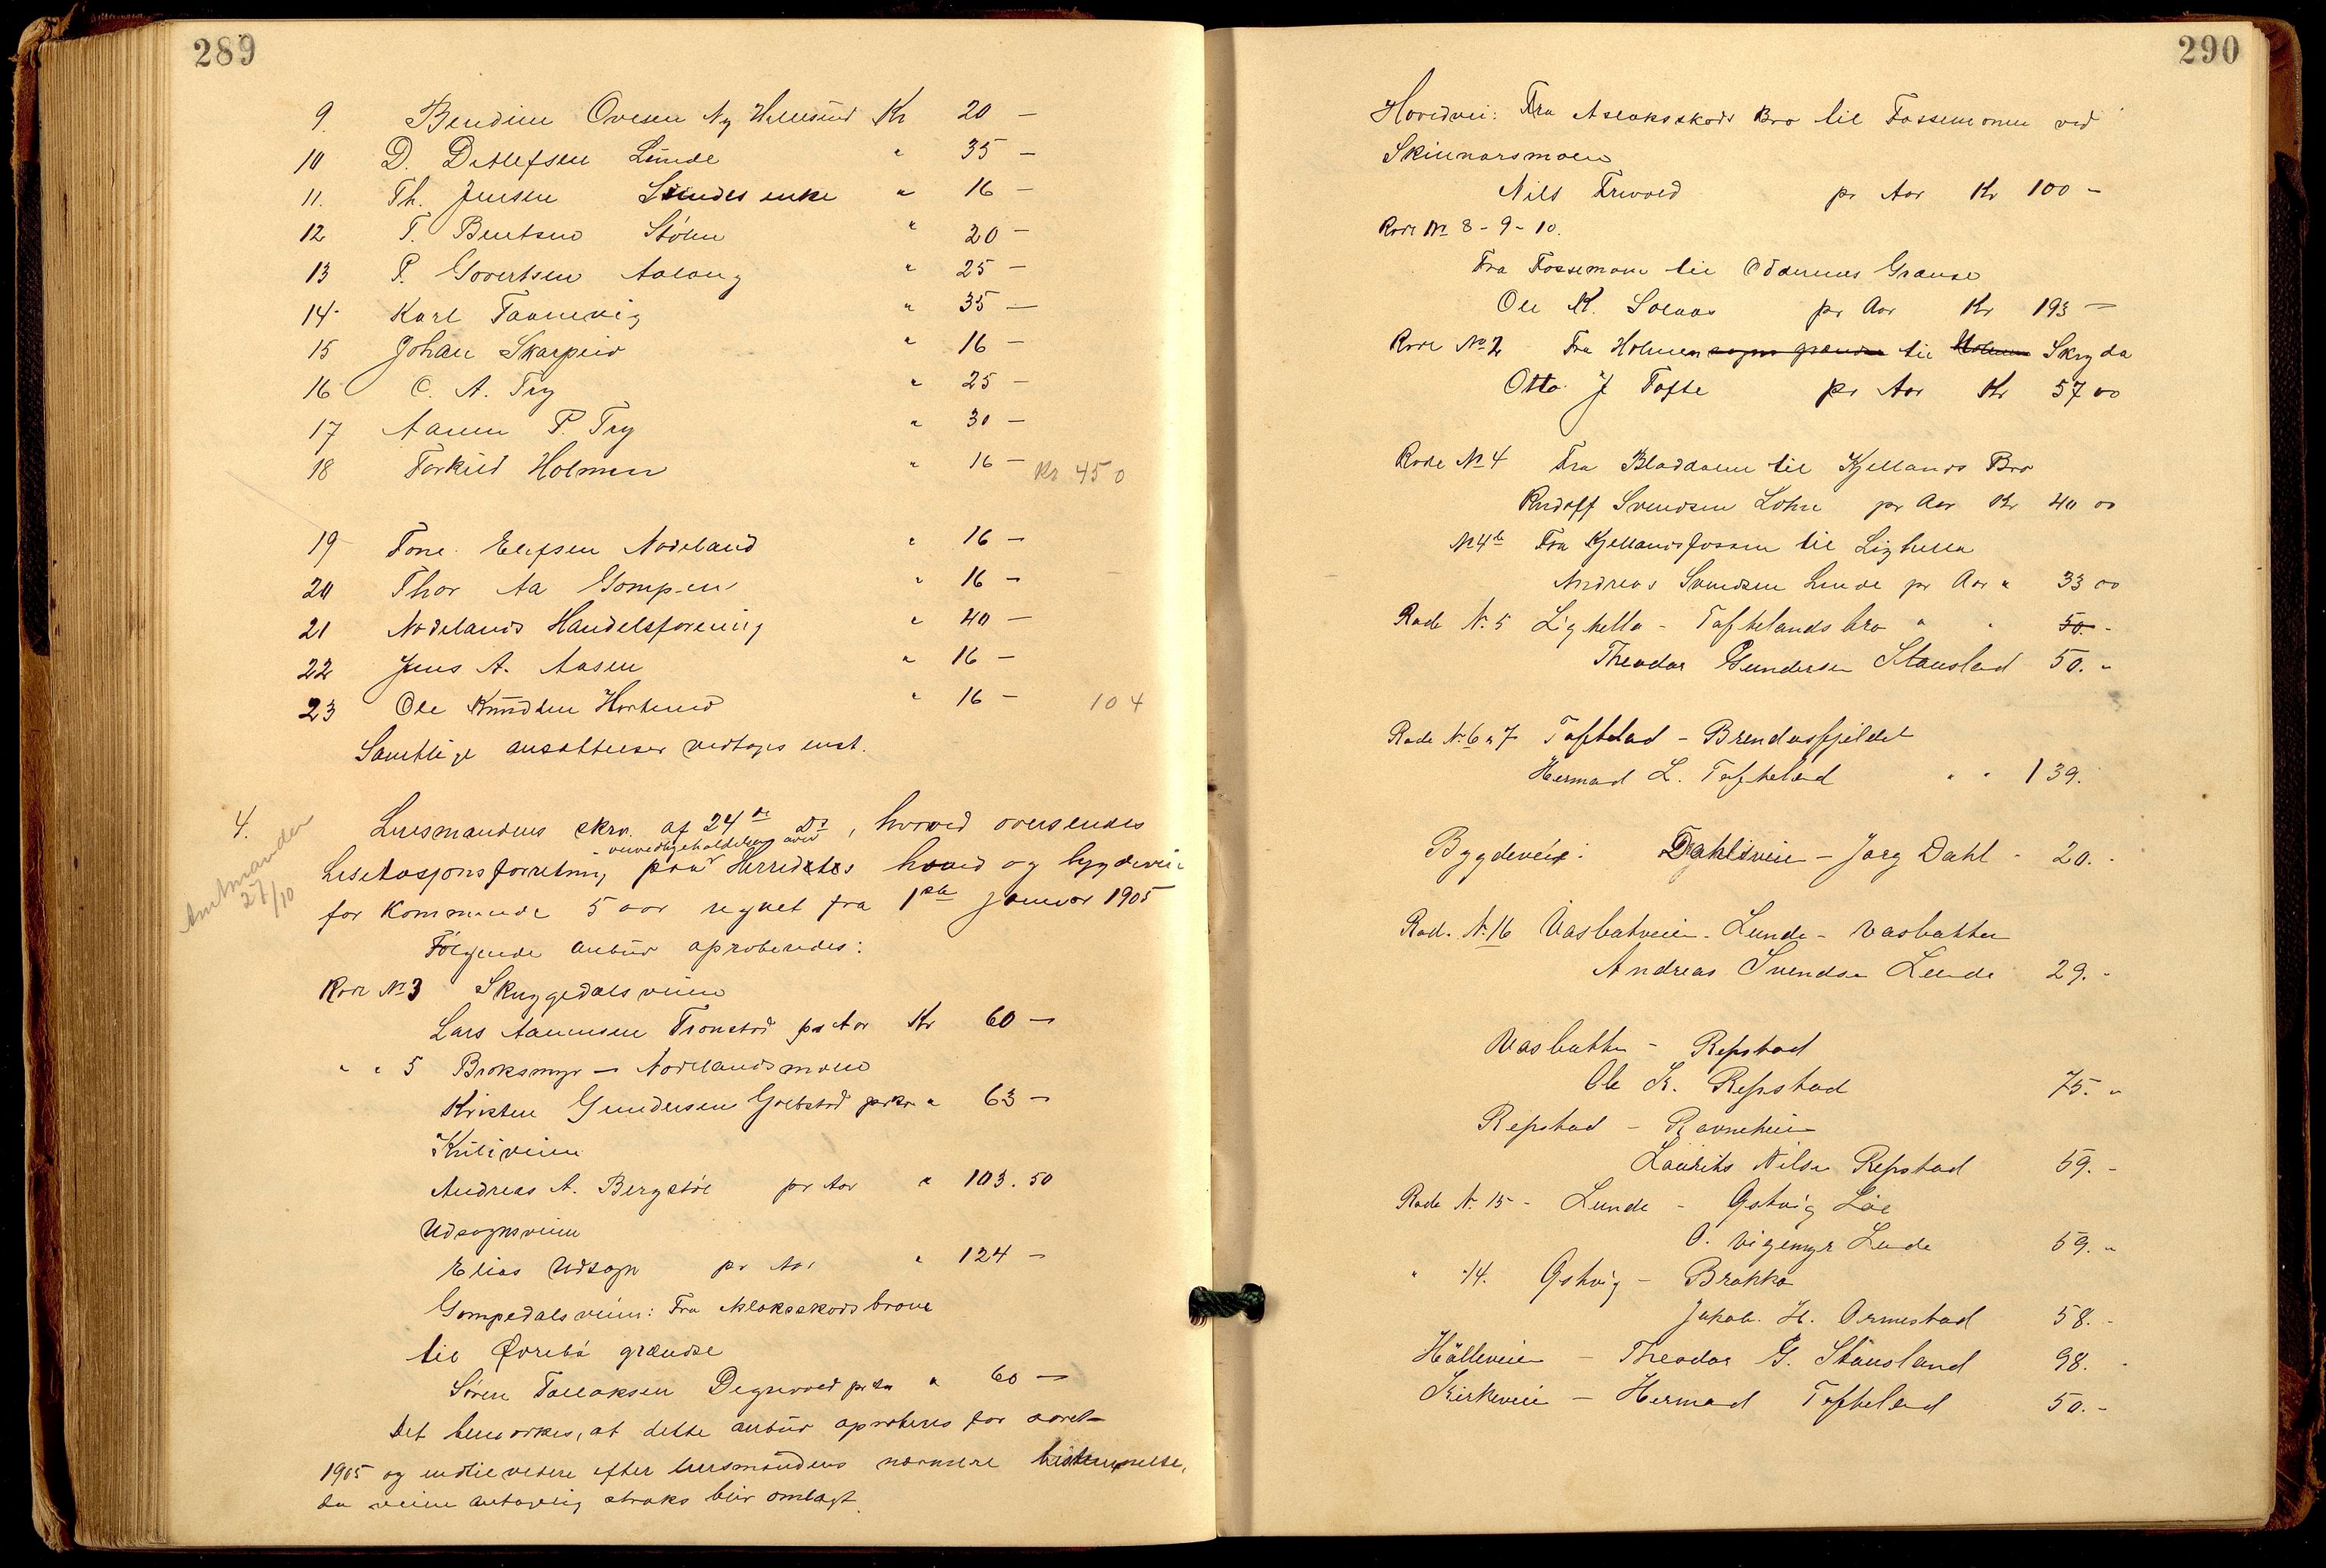 289
9. Bendine Ovesen Ny Hellesund Kr 20 –
10 D. Ditlefsen Lunde " 35 –
11. Th. Jensen Lundes enke " 16 –
12 T. Bentsen Stølen " 20 –
13 P. Govertsen Aalang " 25 –
14 Karl Taanevig " 35 –
15 Johan Skarpeid " 16 –
16 C. A. Try " 25 –
17 Aanen P. Try " 30 –
18 Torkild Holmen " 16 – Kr 450
19 Tone Elefsen Nodeland " 16 –
20 Thor Aa Gompen " 16 –
21 Nodelands Handelsforening " 40 –
22 Jens A. Aasen " 16 –
23 Ole Knudsen Hortemo " 16 – 104
Samtlige ansættelser vedtoges enst.
4. Lensmandens skrv. af 24de Ds, hvorved oversendes
vedligeholdelsen över
Lisitasjonsforretning paa Herredets hoved og bygdeveie
for kommende 5 aar regnet fra 1ste Januar 1905
Amtmanden
27/10
Følgende anbud aproberedes:
Rode No 3 Skuggedalsveien
Lars Aanensen Tronstad pr Aar Kr 60 –
" " 5 Broksmyr – Nodelandsmoen
Kristen Gundersen pr Aar " 63 –
Kuliveien
Andreas A. Bergstøl pr Aar " 103.50
Udsognsveien
Elias Udsogn pr Aar " 124 –
Gompedalsveien: Fra Aslaksskods broen
til Øvrebø grændse
Søren Tallaksen Degrevold pr Aar " 60 –
Det bemærkes, at dette anbud aproberes for aaret
1905 og indtil videre efter lensmandens nærmere bestemmelse,
da veien antagelig straks blir omlagt.
290
Hovedvei: Fra Aslaksskods Bro til Fossemoen ved
Skinnarsmoen
Nils Trivold pr Aar Kr 100 –
Rode No 8 – 9 – 10.
Fra Fossemoen til Oddernes Grænse
Ole K. Solaas pr Aar Kr 193 –
Rode No 2 Fra Holmen sogne grændse til Holmen Skryda
Otto J Tofte pr Aar Kr 57 00
Rode No 4 Fra Bladdalen til Kjellands Bro
Rudolf Svendsen Lohne pr Aar Kr 40 00
No 4b Fra Kjellandsfossen til Lighella
Andreas Svendsen Lunde pr Aar " 33 00
Rode No. 5 Lighella – Toftelands bro " " 50. -
Theodor Gundersen Stausland 50. "
Rode No. 6 & 7 Tofteland – Brendaasfjeldet
Hermod L. Tofteland " " 139.
Bygdeveie: Dahlsveien – Jørg Dahl - 20. -
Rod. No. 16 Vasbakveien – Lunde – Vasbakken
Andreas Svendsen Lunde 29. -
Vasbakken – Repstad
Ole K. Repstad 75. "
Repstad – Ravneheien
Lauritz Nilsen Repstad 59. -
Rode No. 15 – Lunde – Gstvig Løe
O. Vigemyr Lunde 59. "
" " 14. Gstvig – Brakka
Jakob. H. Ormestad 58. -
Hølleveien – Theodor G. Stausland 98. -
Kirkeveien – Hermod Tofteland 50. -